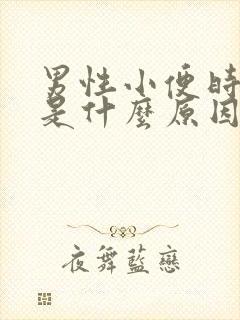 男性小便時
是什麼原因
夜舞藍戀